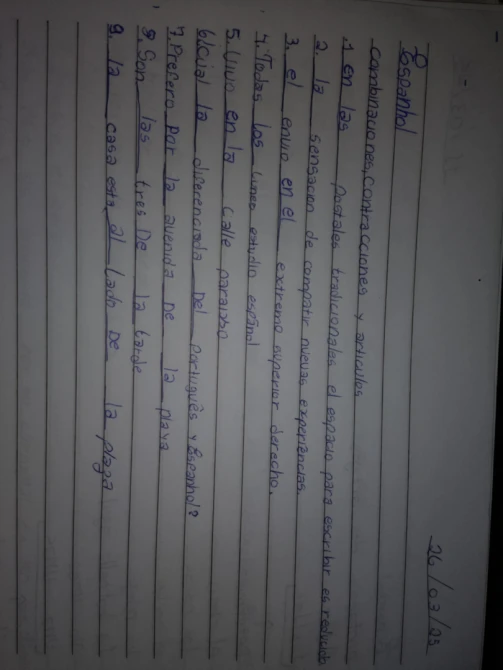 26/03/25
Espanhol
combinaciones, contracciones y articulos
1 en las postales tradicionales el espacio para escribir es reducido
2. la sensacion de compatir nuevas experiências.
3. el envio en el extremo superior derecho.
4. Todas los lunes estudio español
5. Vivo en la calle paraiso
6. Cúal la diferenciada Del português y Espanhol?
7. Prefero Por la avenida De la playa
8. Son las tres De la tarde
9. la casa esta al lado De la plaza